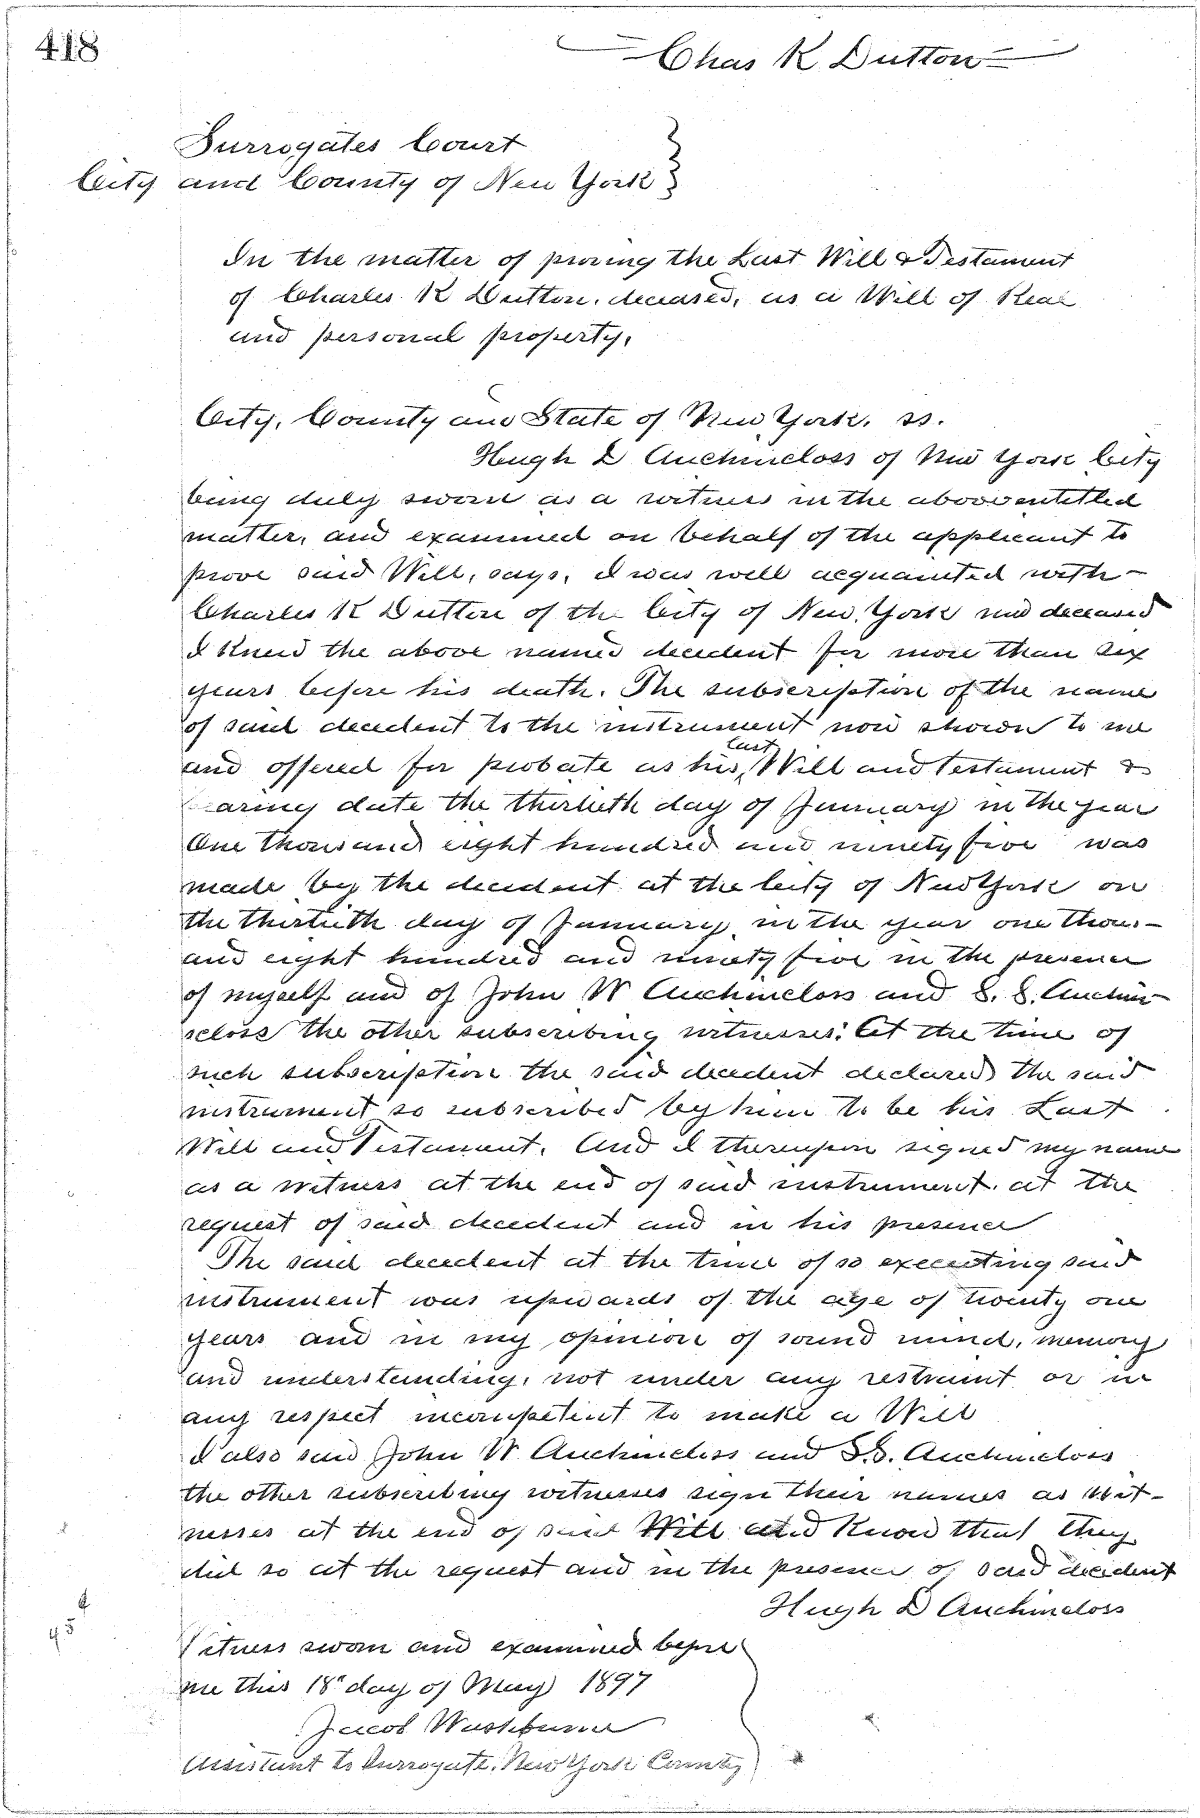 418
Chas K Dutton
Surrogates Court
City and County of New York
In the matter of proving the Last Will & Testament
of Charles K Dutton, deceased, as a Will of Real
and personal property,
City, County and State of New York, ss.
Hugh D Auchincloss of New York City
being duly sworn as a witness in the above entitled
matter, and examined on behalf of the applicant to
prove said Will, says, I was well acquainted with
Charles K Dutton of the City of New York now deceased
I knew the above named decedent for more than six
years before his death. The subscription of the name
of said decedent to the instrument now shown to me
and offered for probate as his last Will and Testament &
earing date the thirtieth day of January in the year
One thousand eight hundred and ninety five was
made by the decedent at the City of New York on
the thirtieth day of January, in the year one thous-
and eight hundred and ninety five in the presence
of myself and of John W Auchincloss and S. S. Auchin-
scloss the other subscribing witnesses: At the time of
such subscription the said decedent declared the said
instrument so subscribed by him to be his Last
Will and Testament. And I thereupon signed my name
as a witness at the end of said instrument. at the
request of said decedent and in his presence
The said decedent at the time of so executing said
instrument was upwards of the age of twenty one
years and in my opinion of sound mind, memory
and understanding, not under any restraint or in
any respect incompetent to make a Will
I also said John W Auchincloss and S.S. Auchincloss
the other subscribing witnesses sign their names as wit-
nesses at the end of said Will and know that they
did so at the request and in the presence of said decedent
Hugh D Auchincloss
Witness sworn and examined before
me this 18" day of May 1897
Jacob Washburne
Assistant to Surrogate. New York County